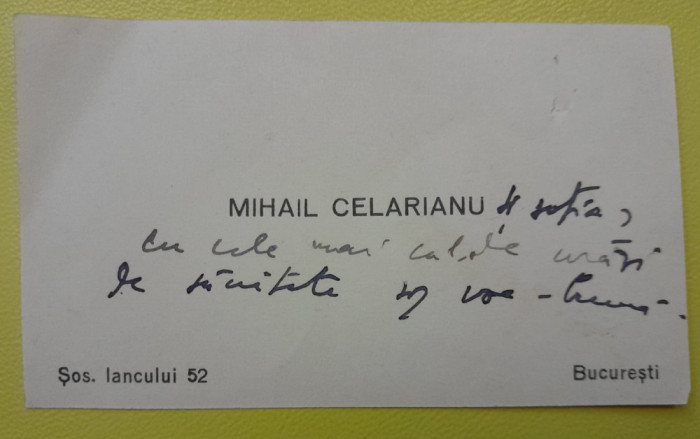 MIHAIL CELARIANU și soția,
cu cele mai calde urări
de sănătate și voe-bună-.
Șos. Iancului 52
București